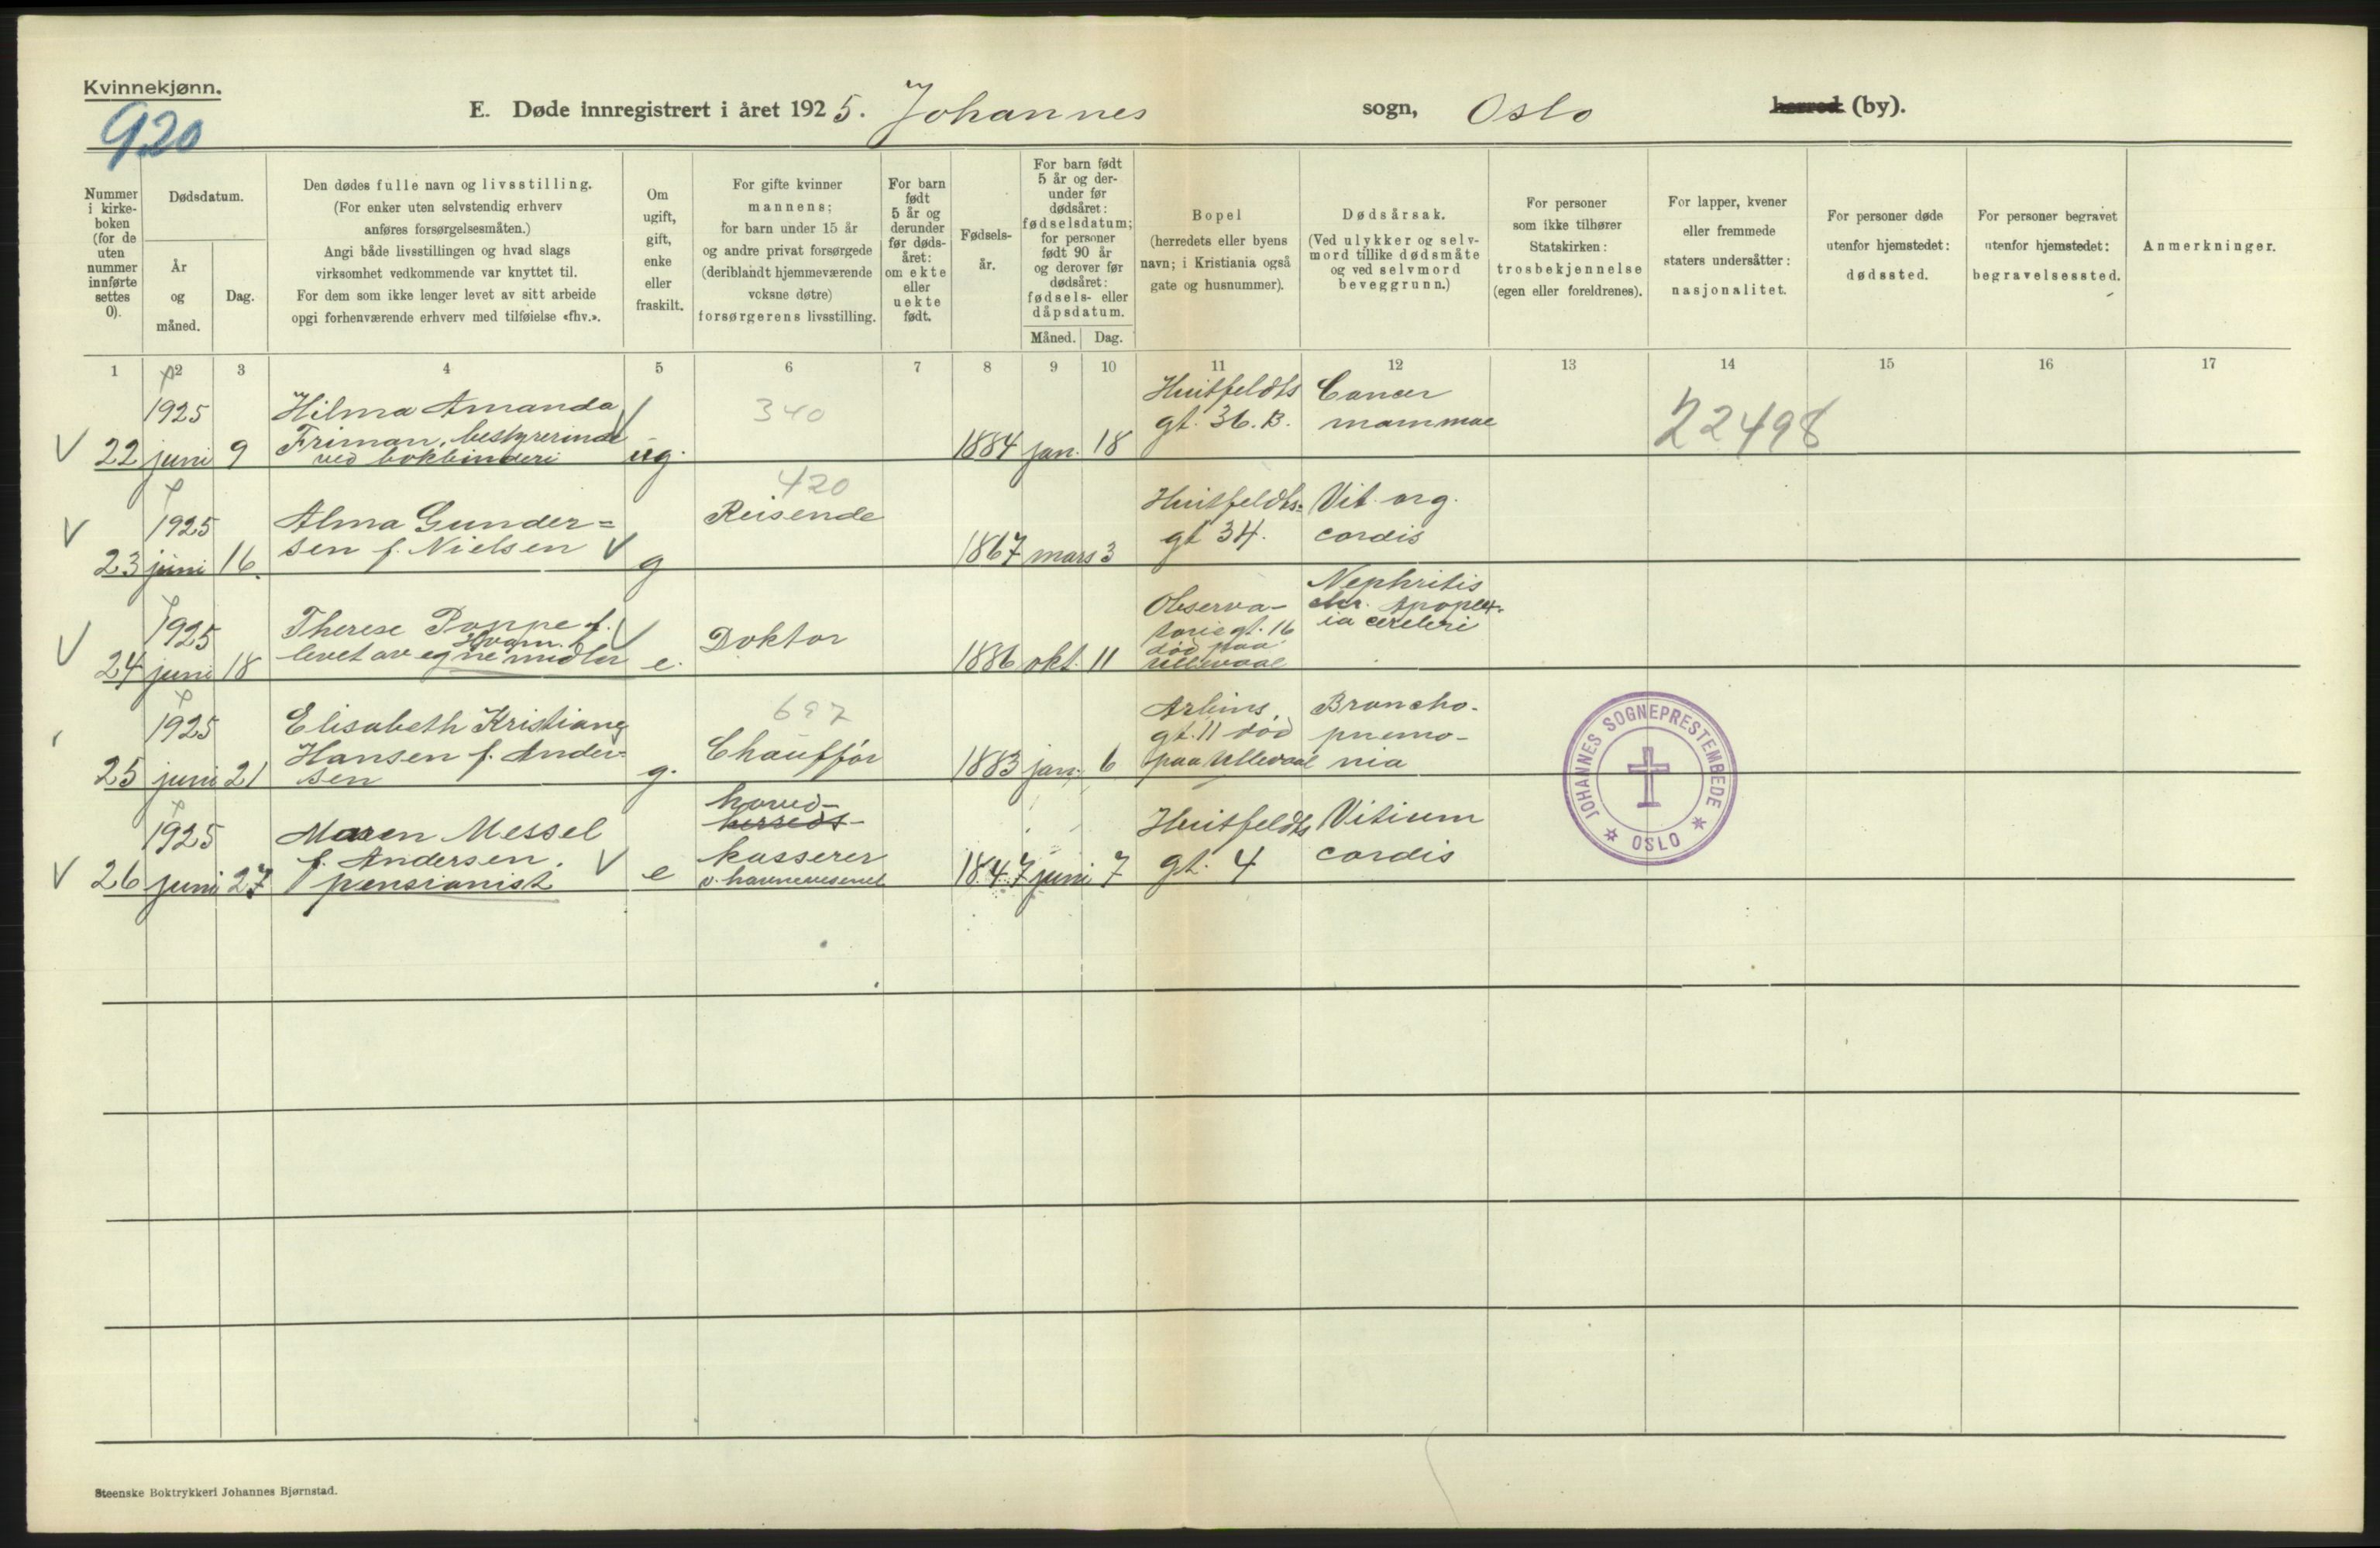 Kvinnekjønn.
920
E. Døde innregistrert i året 1925. Johannes sogn, Oslo herred (by).
Nummer i kirke-boken (for de uten nummer innførte settes 0).
Dødsdatum.
År og måned.
Dag.
Den dødes fulle navn og livsstilling.
(For enker uten selvstendig erhverv
anføres forsørgelsesmåten.)
Angi både livsstillingen og hvad slags
virksomhet vedkommende var knyttet til.
For dem som ikke lenger levet av sitt arbeide
opgi forhenværende erhverv med tilføielse «fhv.».
Om
ugift,
gift,
enke
eller
fraskilt.
For gifte kvinner
mannens;
for barn under 15 år
og andre privat forsørgede
(deriblandt hjemmeværende
voksne døtre)
forsørgerens livsstilling.
For barn
født
5 år og
derunder
før døds-
året:
om ekte
eller
uekte
født.
Fødsels-
år.
For barn født
5 år og der-
under før
dødsåret:
fødselsdatum;
for personer
født 90 år
og derover før
dødsåret:
fødsels- eller
dåpsdatum.
Måned. Dag.
Bopel
(herredets eller byens
navn; i Kristiania også
gate og husnummer).
Dødsårsak.
(Ved ulykker og selv-
mord tillike dødsmåte
og ved selvmord
beveggrunn.)
For personer
som ikke tilhører
Statskirken:
trosbekjennelse
(egen eller foreldrenes).
For lapper, kvener
eller fremmede
staters undersåtter:
nasjonalitet.
For personer døde
utenfor hjemstedet:
dødssted.
For personer begravet
utenfor hjemstedet:
begravelsessted.
Anmerkninger.
1 2 3 4 5 6 7 8 9 10 11 12 13 14 15 16 17
1925 Hilma Amanda 340 Huitfeldts Cancer
Friman, bestyrerinde gt. 36. B. mammae 22498
22 juni 9 ved bokbinderi ug. 1884 jan. 18
420
1925 Alma Gunder= Reisende Huitfeldts= Vit. org.
23 juni 16. sen f. Nielsen g 1867 mars 3 gt 34. cordis
Nephritis
1925 Therese Poppe f. Observa- chr. Apoplex-
Doktor torie gt. 16 ia cerebri
død paa
24 juni 18 levet av egne midler e. 1886 okt. 11 Ullevaal
697
1925 Elisabeth Kristiane Arbins Broncho-
Hansen f. Ander= Chauffør gt. 11 død pnemo-
25 juni 21 sen g. 1883 jan. 6 paa Ullevaal nia
hoved-
herreds-
1925 Maren Messel Huitfeldts Vitium
f. Andersen. kasserer gt. 4 cordis
26 juni 27 pensionist e v. havnevesenet 1847 juni 7
JOHANNES SOGNEPRESTEMBEDE
OSLO
Steenske Boktrykkeri Johannes Bjørnstad.